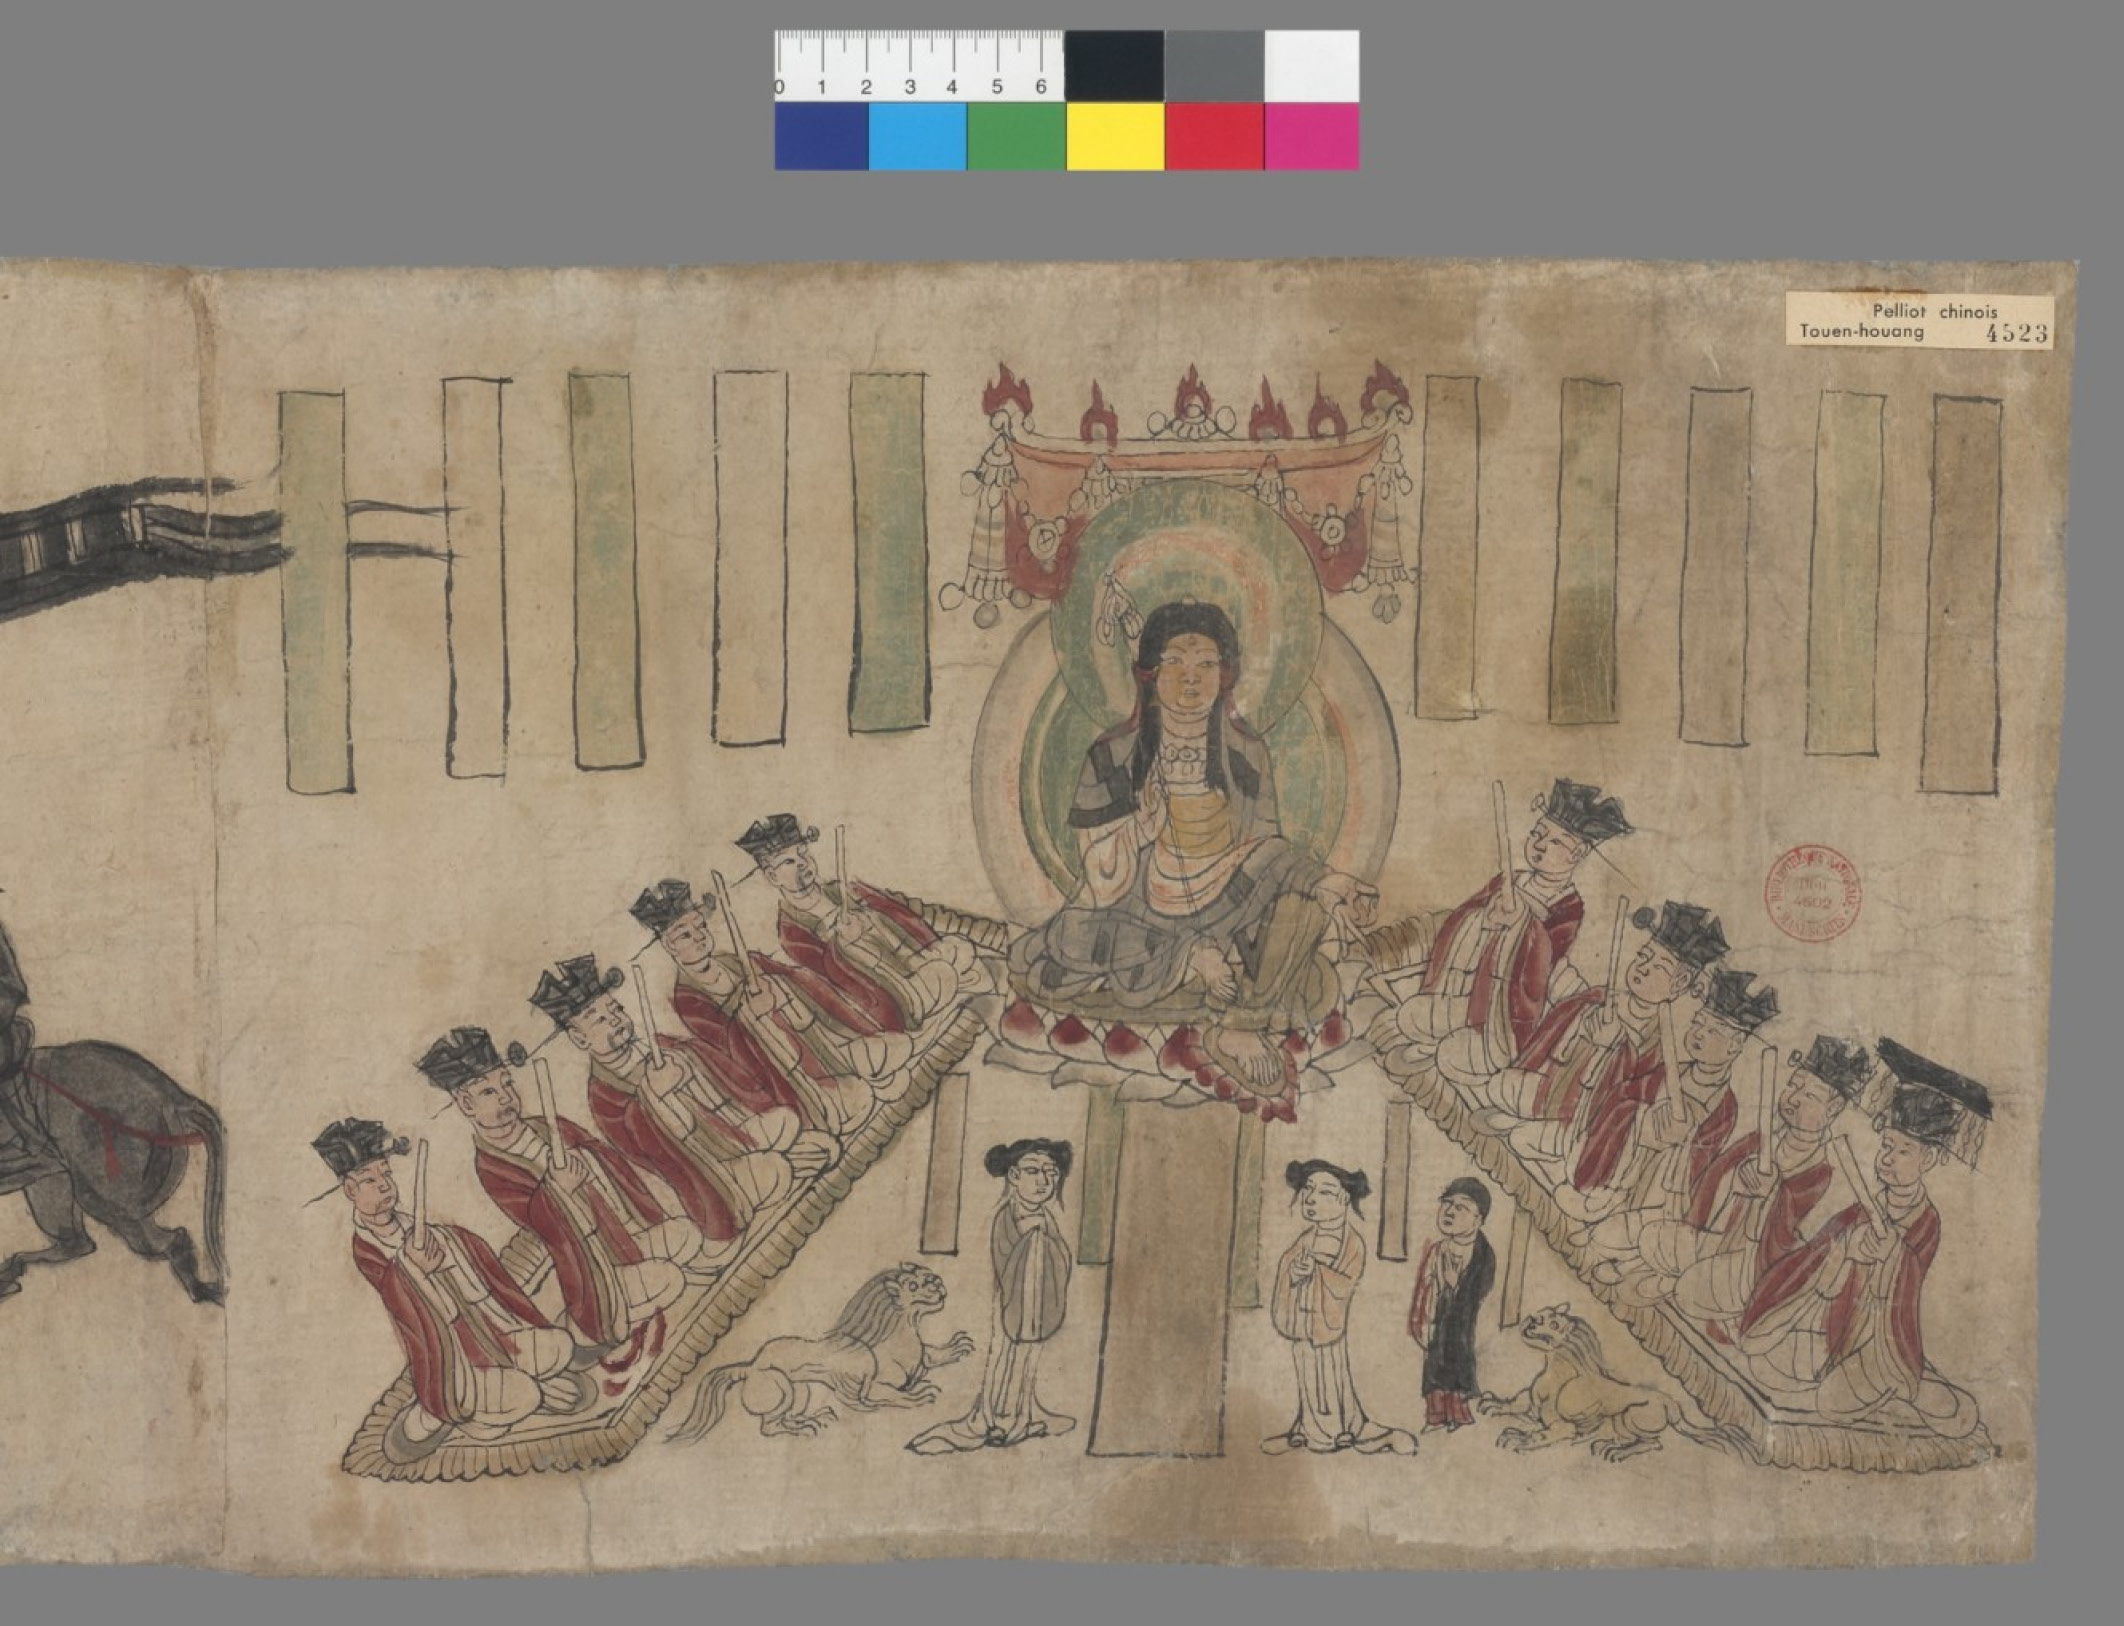 0 1 2 3 4 5 6
Pelliot chinois
Touen-houang 4523
4602